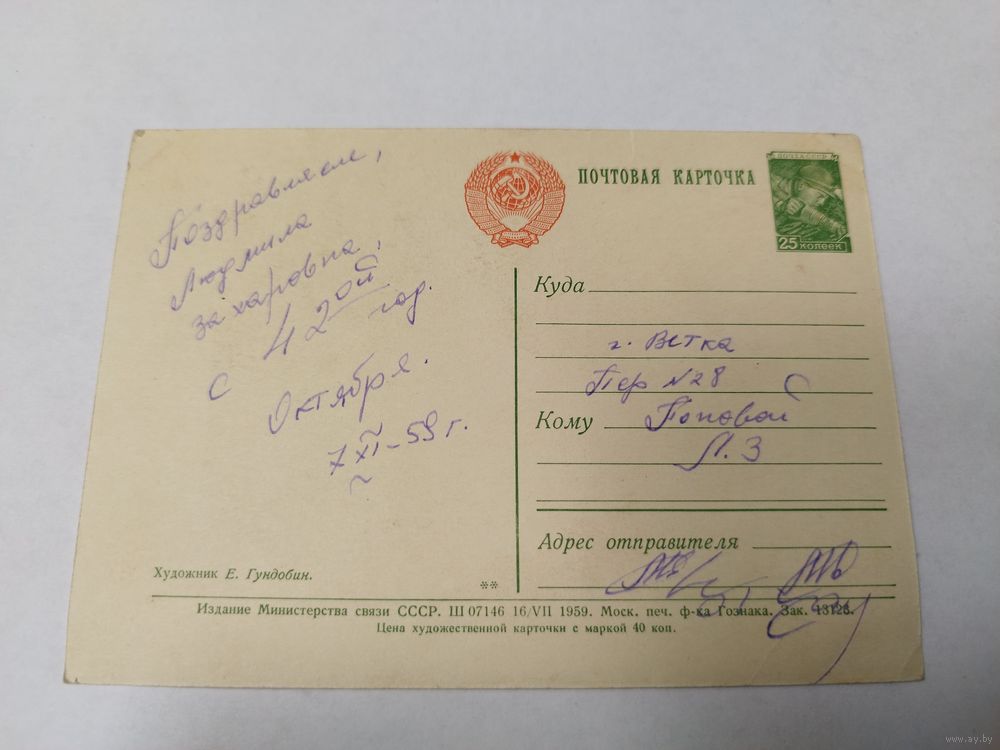 Поздравляем,
Людмила
Захаровна,
с 42ой год.
Октября.
7 XI – 59 г.
Художник Е. Гундобин.
ПОЧТОВАЯ КАРТОЧКА
ПОЧТА СССР
25 копеек
Куда
г. Ветка
Пер №28
Кому Поповой
Л. З
Адрес отправителя
**
Издание Министерства связи СССР. Ш 07146 16/VII 1959. Моск. печ. ф-ка Гознака. Зак. 13128.
Цена художественной карточки с маркой 40 коп.
www.ay.by